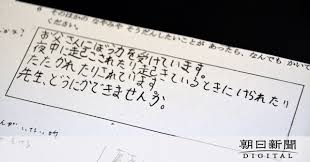 そのほかの なやみや そうだんしたいことが あったら、なんでも かいて
ください。
お父さんにぼう力を受けています。
夜中に起こされたり起きているときにけられたり
たたかれたりされています。
先生、どうにかできませんか。
朝日新聞
DIGITAL